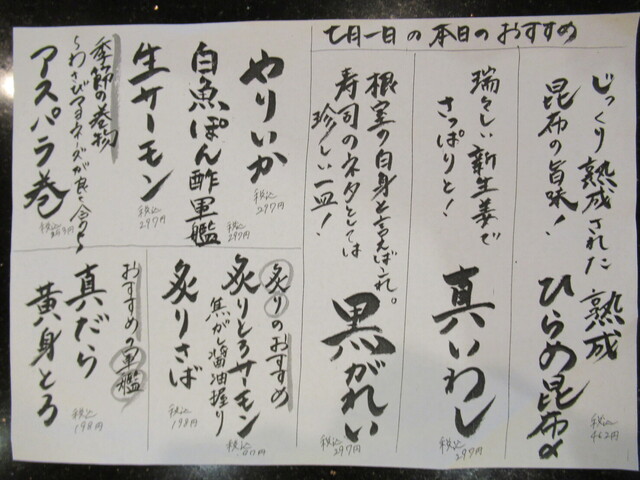 七月一日の本日のおすすめ
じっくり熟成された
昆布の旨味!
熟成
ひらめ昆布〆
税込
462円
瑞々しい新生姜で
さっぱりと!
真いわし
税込
297円
根室の白身と言えばこれ。
寿司のネタとしては
珍しい一皿!
黒がれい
税込
297円
やりいか
税込
297円
白魚ぽん酢軍艦
税込
297円
生サーモン
税込
297円
季節の巻物
〜わさびマヨネーズが良く合う〜
アスパラ巻
税込
炙りのおすすめ
炙りとろサーモン
焦がし醤油握り
税込
炙りさば
税込
198円
おすすめの軍艦
真だら
黄身とろ
税込
198円